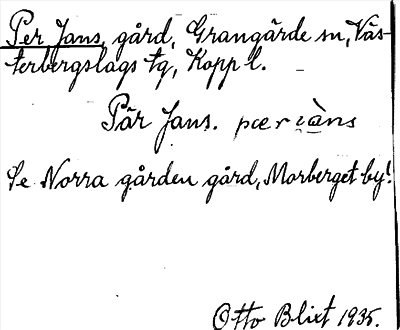 Per Jans, gård, Grangärde sn, Väs-
terbergslags tg, Kopp l.
Pär Jans. pær ıὰns
Se Norra gården gård, Morberget by!
Otto Blixt 1935.